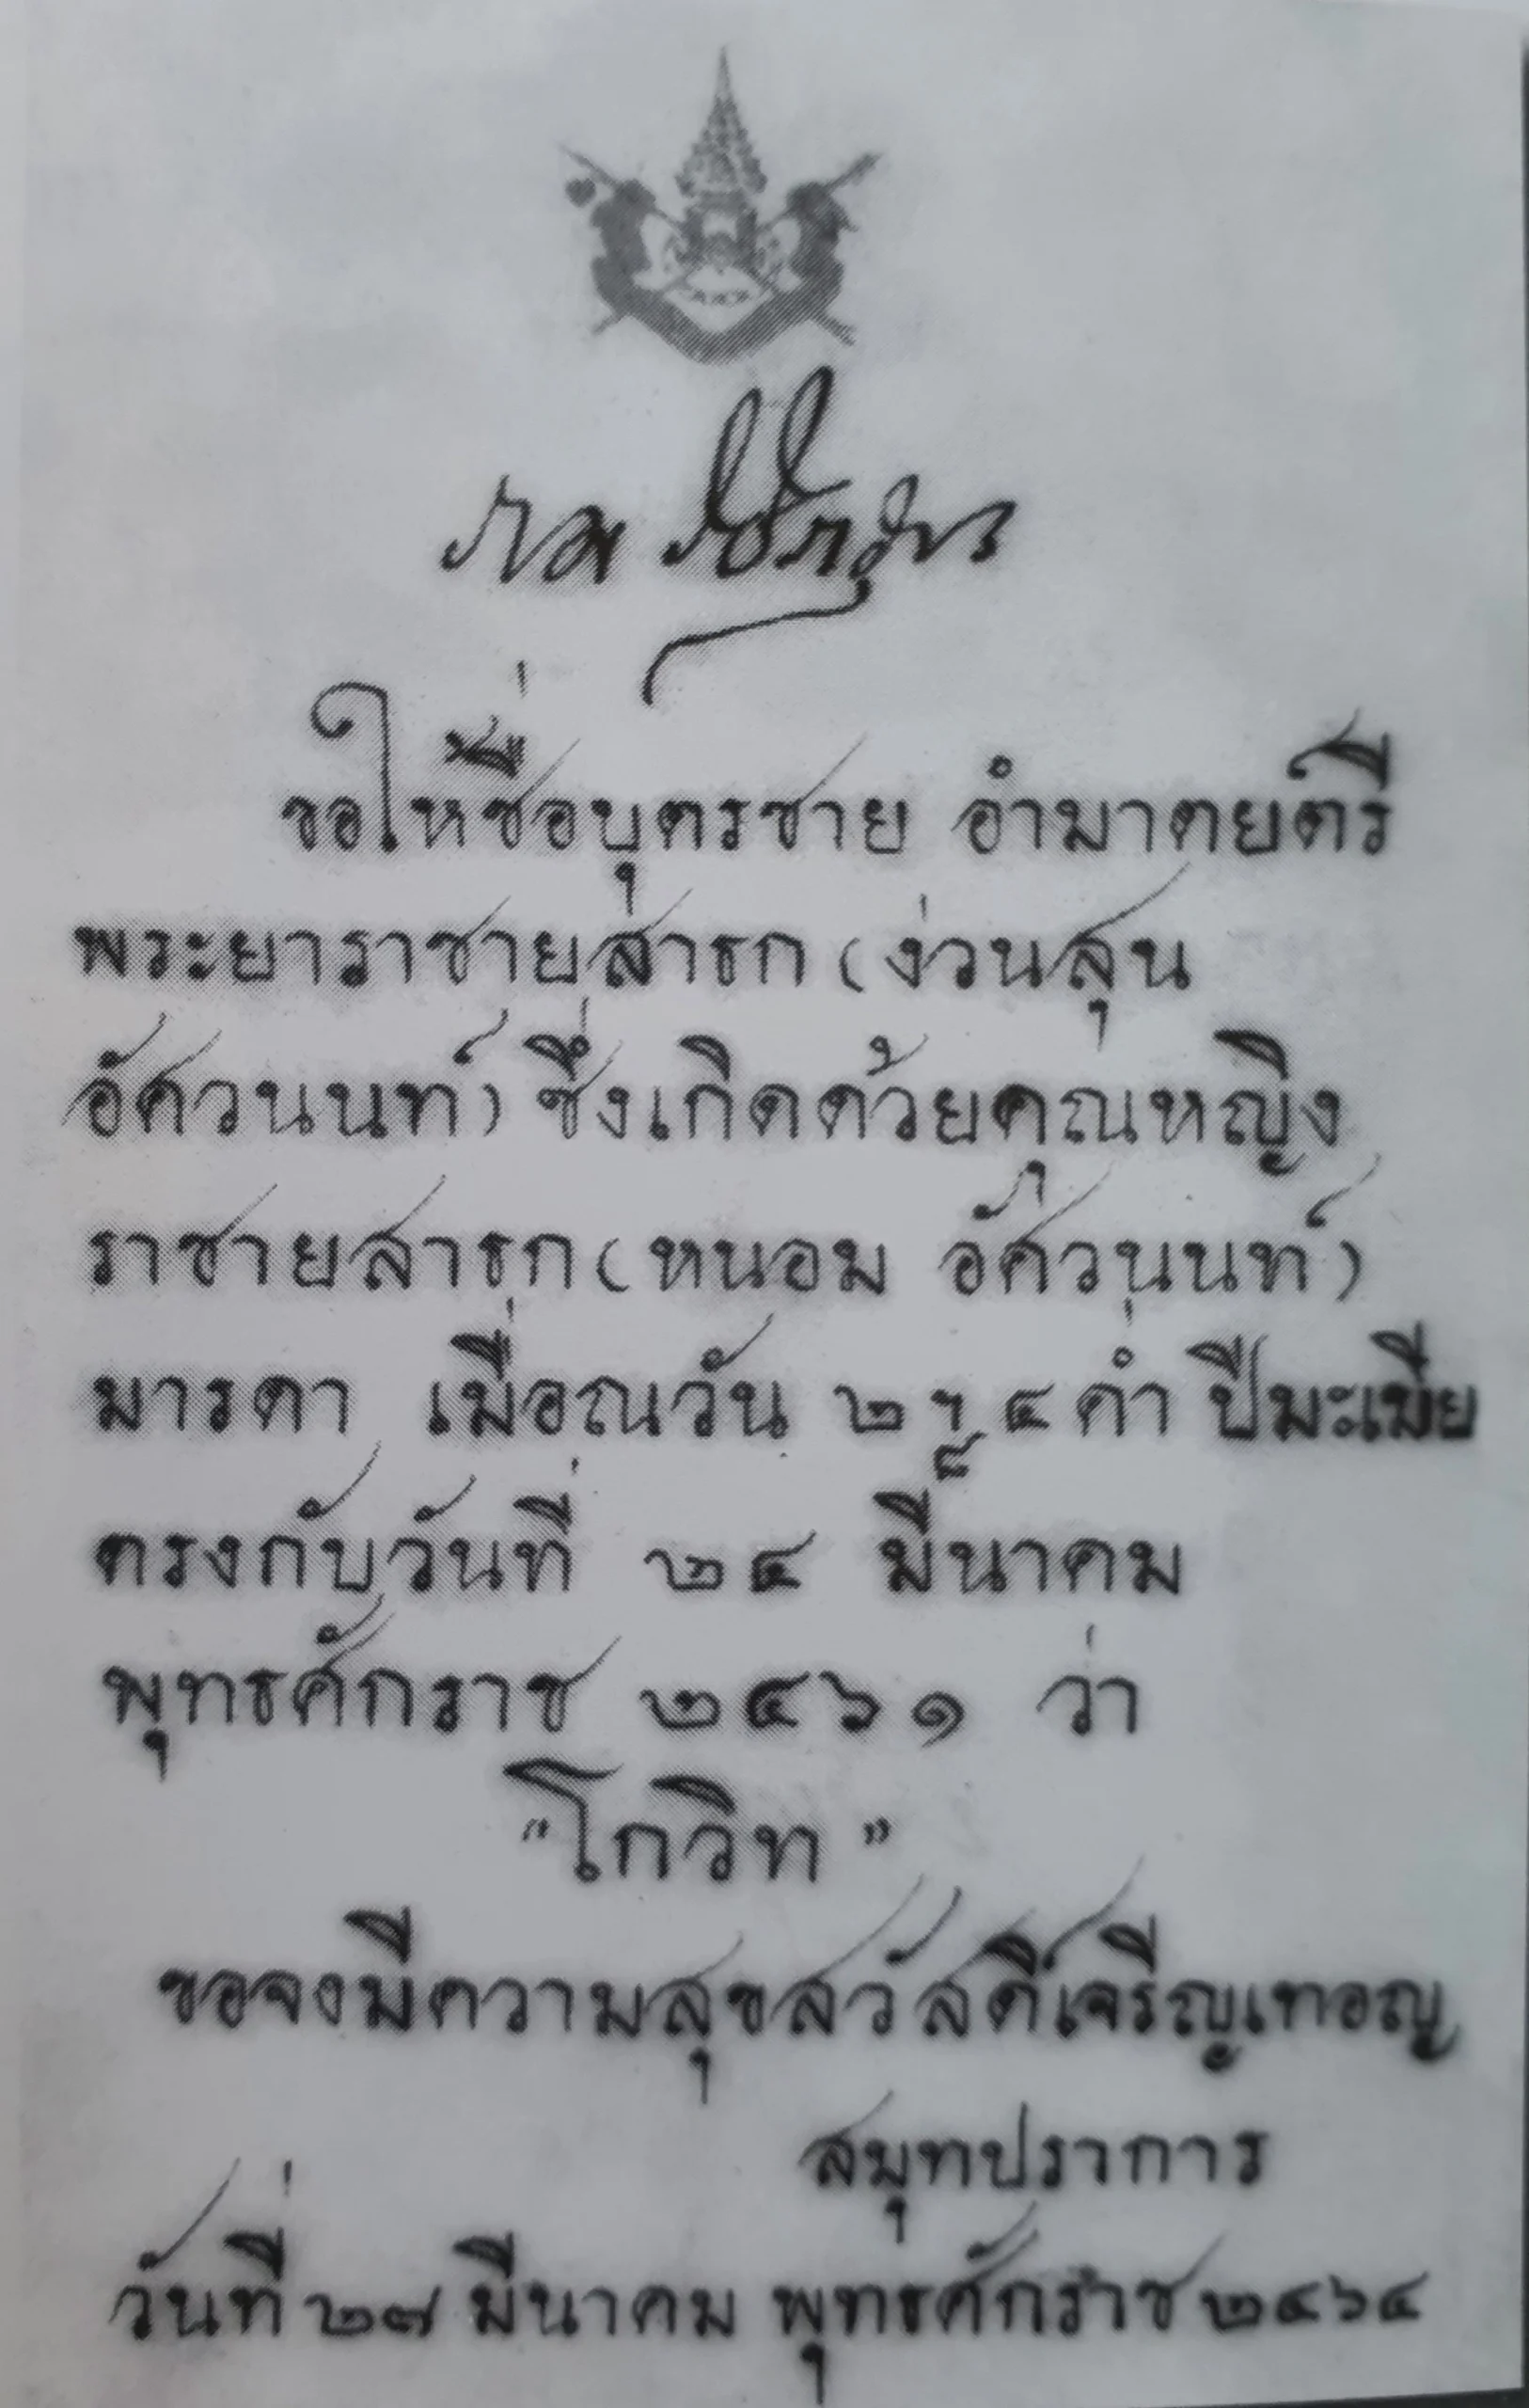 ราม วชิราวุธ
ขอให้ชื่อบุตรชาย อำมาตย์ตรี
พระยาราชายสาธก (ง่วนสุน
อัศวนนท์) ซึ่งเกิดด้วยคุณหญิง
ราชายสาธก (หนอม อัศวนนท์)
มารดา เมื่อณวัน ๒ ๔ ค่ำ ปีมะเมีย
ตรงกับวันที่ ๒๔ มีนาคม
พุทธศักราช ๒๔๖๑ ว่า
"โกวิท"
ขอจงมีความสุขสวัสดิ์เจริญเทอญ
สมุทปราการ
วันที่ ๒๗ มีนาคม พุทธศักราช ๒๔๖๔